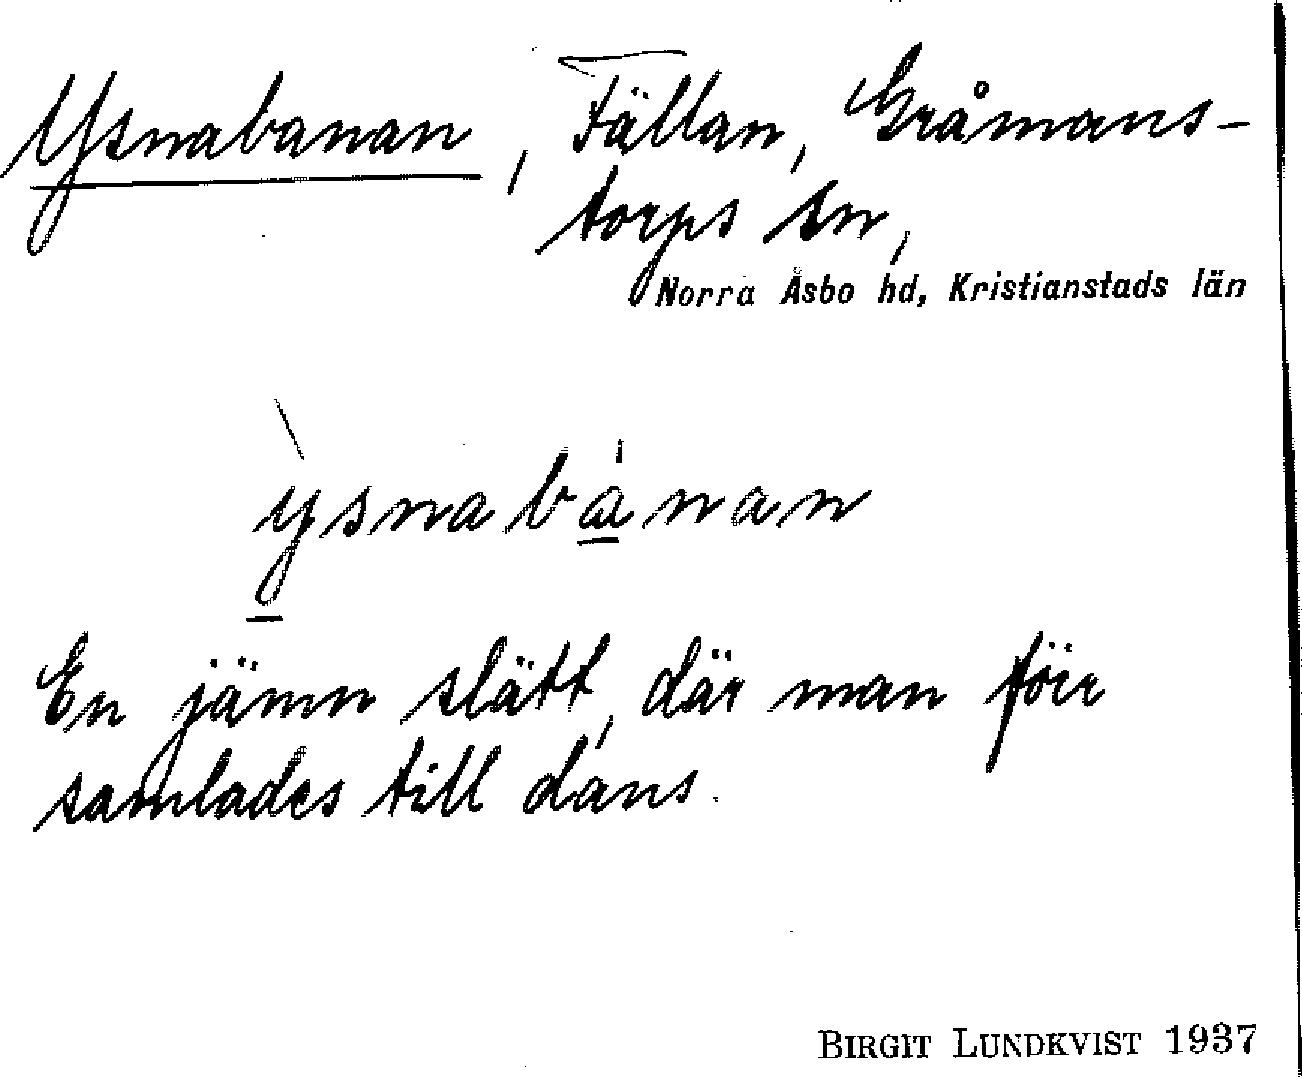 Ysnabanan, Fällan, Gråmans-
torps sn,
Norra Åsbo hd, Kristianstads län
ỳsnabánan
En jämn slätt, där man förr
samlades till dans.
BIRGIT LUNDKVIST 1937